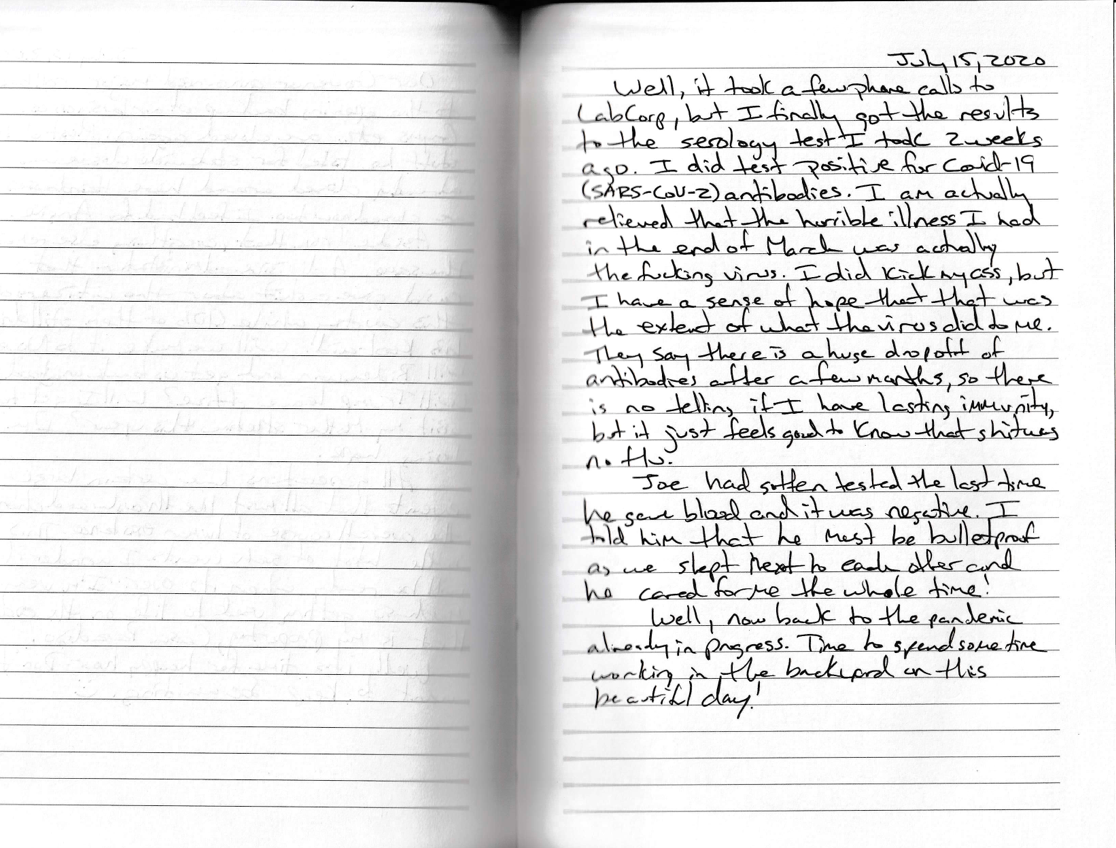 July 15, 2020
Well, it took a few phone calls to
LabCorp, but I finally got the results
to the serology test I took 2 weeks
ago. I did test positive for Covid-19
(SARS-CoV-2) antibodies. I am actually
relieved that the horrible illness I had
in the end of March was actually
the fucking virus. I did kick my ass, but
I have a sense of hope that that was
the extent of what the virus did to me.
They say there is a huge dropoff of
antibodies after a few months, so there
is no telling if I have lasting immunity,
but it just feels good to know that shit was
no flu.
Joe had gotten tested the last time
he gave blood and it was negative. I
told him that he must be bulletproof
as we slept next to each other and
he cared for me the whole time!
Well, now back to the pandemic
already in progress. Time to spend some time
working in the backyard on this
beautiful day!